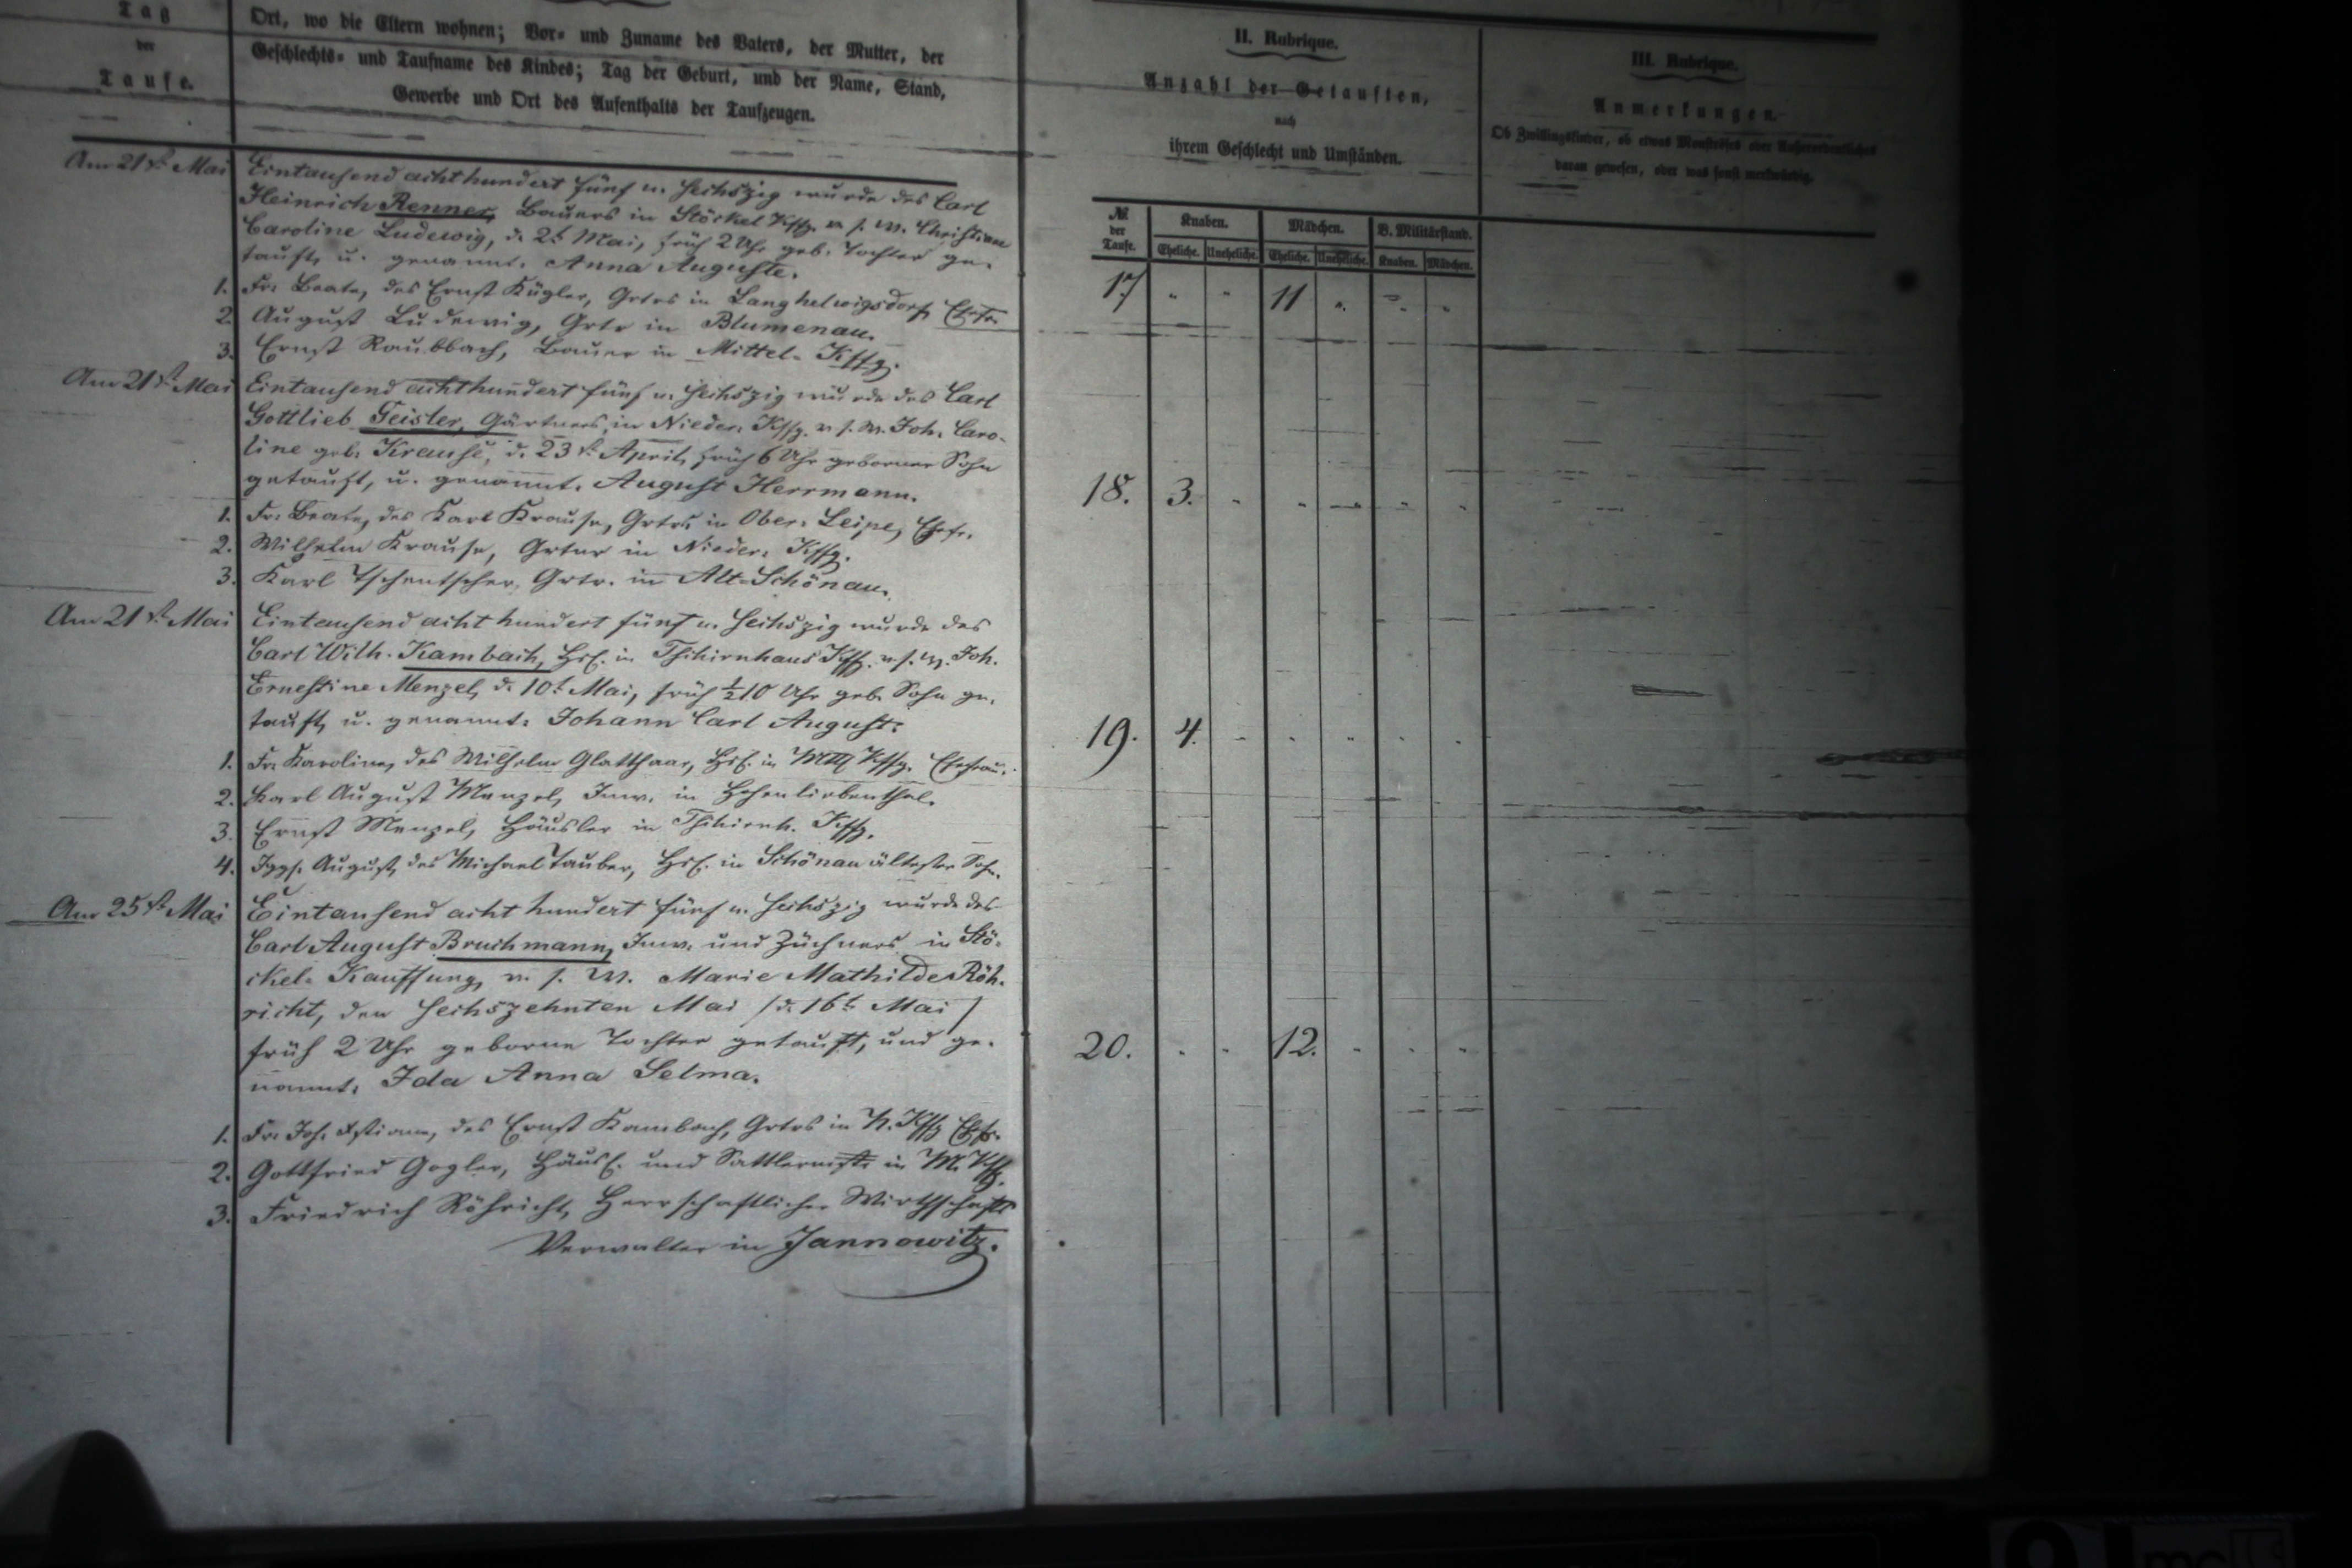 Tag
der
Taufe.
Ort, wo die Eltern wohnen; Vor- und Zuname des Vaters, der Mutter, der
Geschlechts- und Taufname des Kindes; Tag der Geburt, und der Name, Stand,
Gewerbe und Ort des Aufenthalts der Taufzeugen.
Am 21t. Mai
Eintausend achthundert fünf u. sechszig wurde des Carl
Heinrich Renner, Bauers in Stöckel Kffg. v. s. W. Christiane
Caroline Ludewig, d. 2t Mai, früh 2 Uhr geb. Tochter ge-
tauft, u. genannt: Anna Auguste.
1. Fr. Beate, des Ernst Kügler, Grtrs in Langhelwigsdorf, Ehefr.
2. August Ludewig, Grtr in Blumenau.
3. Ernst Raubbach, Bauer in Mittel-Kffg.
Am 21t. Mai
Eintausend achthundert fünf u. sechszig wurde des Carl
Gottlieb Geisler, Gärtners in Nieder-Kffg. v. s. W. Joh. Caro-
line geb. Krause, d. 23t. April, früh 6 Uhr geborner Sohn
getauft, u. genannt: August Herrmann.
1. Fr. Beate, des Karl Krause, Grtrs in Ober-Leipe, Ehefr.
2. Wilhelm Krause, Grtnr in Nieder-Kffg.
3. Karl Tschentscher, Grtr. in Alt-Schönau.
Am 21t. Mai
Eintausend acht hundert fünf u. sechszig wurde des
Carl Wilh. Kambach, Hsl. in Tschirnhaus Kffg. v. s. W. Joh.
Ernestine Menzel, d. 10t Mai, früh ½10 Uhr geb. Sohn ge-
tauft, u. genannt: Johann Carl August.
1. Fr. Karoline, des Wilhelm Glatthaar, Hsl. in Kffg. Ehefrau.
2. Karl August Menzel, Inw. in Hohenliebenthal.
3. Ernst Menzel, Häusler in Tschirnh. Kffg.
4. Jggs. August, des Michael Tauber, Hsl. in Schönau ältester Sohn.
Am 25t. Mai
Eintausend acht hundert fünf u. sechszig wurde des
Carl August Bruchmann, Inw. und Züchners in Stö-
ckel-Kauffung, v. s. W. Marie Mathilde Röh-
richt, den sechszehnten Mai /d. 16t Mai/
früh 2 Uhr geborne Tochter getauft, und ge-
nannt: Ida Anna Selma.
1. Fr. Joh. des Ernst Kambach, Grtrs in N. Kffg Ehefr.
2. Gottfried Gogler, Häusl. und Sattlermstr. in M. Kffg.
3. Friedrich Röhricht, Herrschaftlicher Wirthschafts
Verwalter in Jannowitz.
II. Rubrique.
Anzahl der Getauften,
nach
ihrem Geschlecht und Umständen.
III. Rubrique.
Anmerkungen.
Ob Zwillingskinder, ob etwas Monströses oder Außerordentliches
daran gewesen, oder was sonst merkwürdig.
№ der Taufe. Knaben. Mädchen. B. Militärstand.
Eheliche. Uneheliche. Eheliche. Uneheliche. Knaben. Mädchen.
17 " " 11 " " "
18. 3. " " " " "
19. 4. " " " " "
20. " " 12. " " "